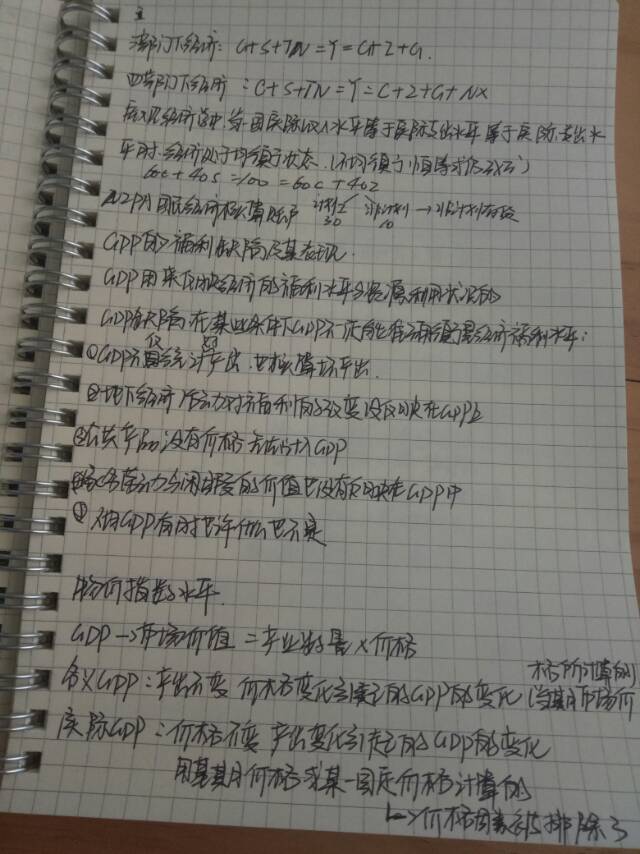 三部门下经济: C+S+TN=Y=C+I+G.
四部门下经济: C+S+TN=Y=C+I+G+NX
宏观经济学中,当一国实际收入水平等于实际支出水平等于实际产出水
平时,经济处于均衡状态.(不均衡,恒等式仍成立)
60C+40S=100=60C+40I
计划I 30 非计划 10 →非计划存货
国民经济核算账户
GDP的福利缺陷及其表现.
GDP用来反映经济的福利水平与资源利用状况的
GDP的缺陷,在某些条件下GDP不能衡量经济福利水平:
①GDP不仅统计产出,也核算坏产出.
②地下经济活动对福利的改变没反映在GDP上
③公共产品没有价格无法计入GDP
④家务劳动与闲暇的价值也没有反映在GDP中
人均GDP有时也许什么也不是
物价指数水平.
GDP→市场价值=产业数量×价格
名义GDP:产出不变 价格变化引起的GDP的变化 (当期市场价
格所计算的)
实际GDP:价格不变 产出变化引起的GDP的变化
用基期价格或某一固定价格计算的
↳价格因素被排除了